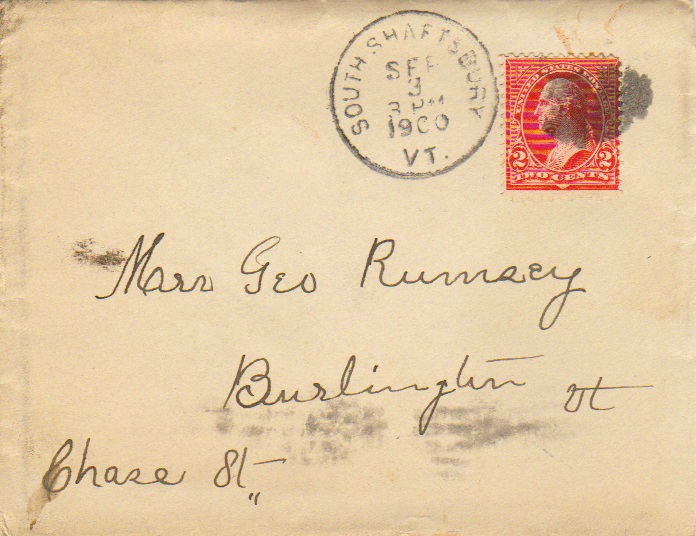 SOUTH SHAFTSBURY
SEP
3
3 PM
1900
VT.
UNITED STATES POSTAGE
2 2
TWO CENTS
Geo Rumsey
Burlington Vt
Chase St